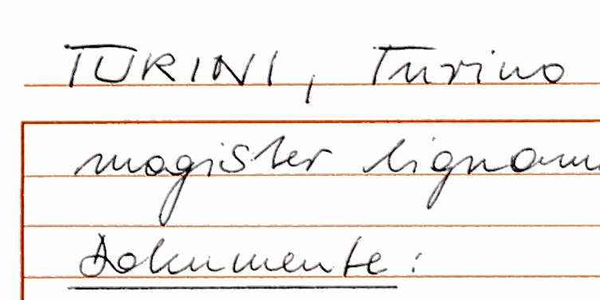 TURINI, Turino
magister lignam
Dokumente: